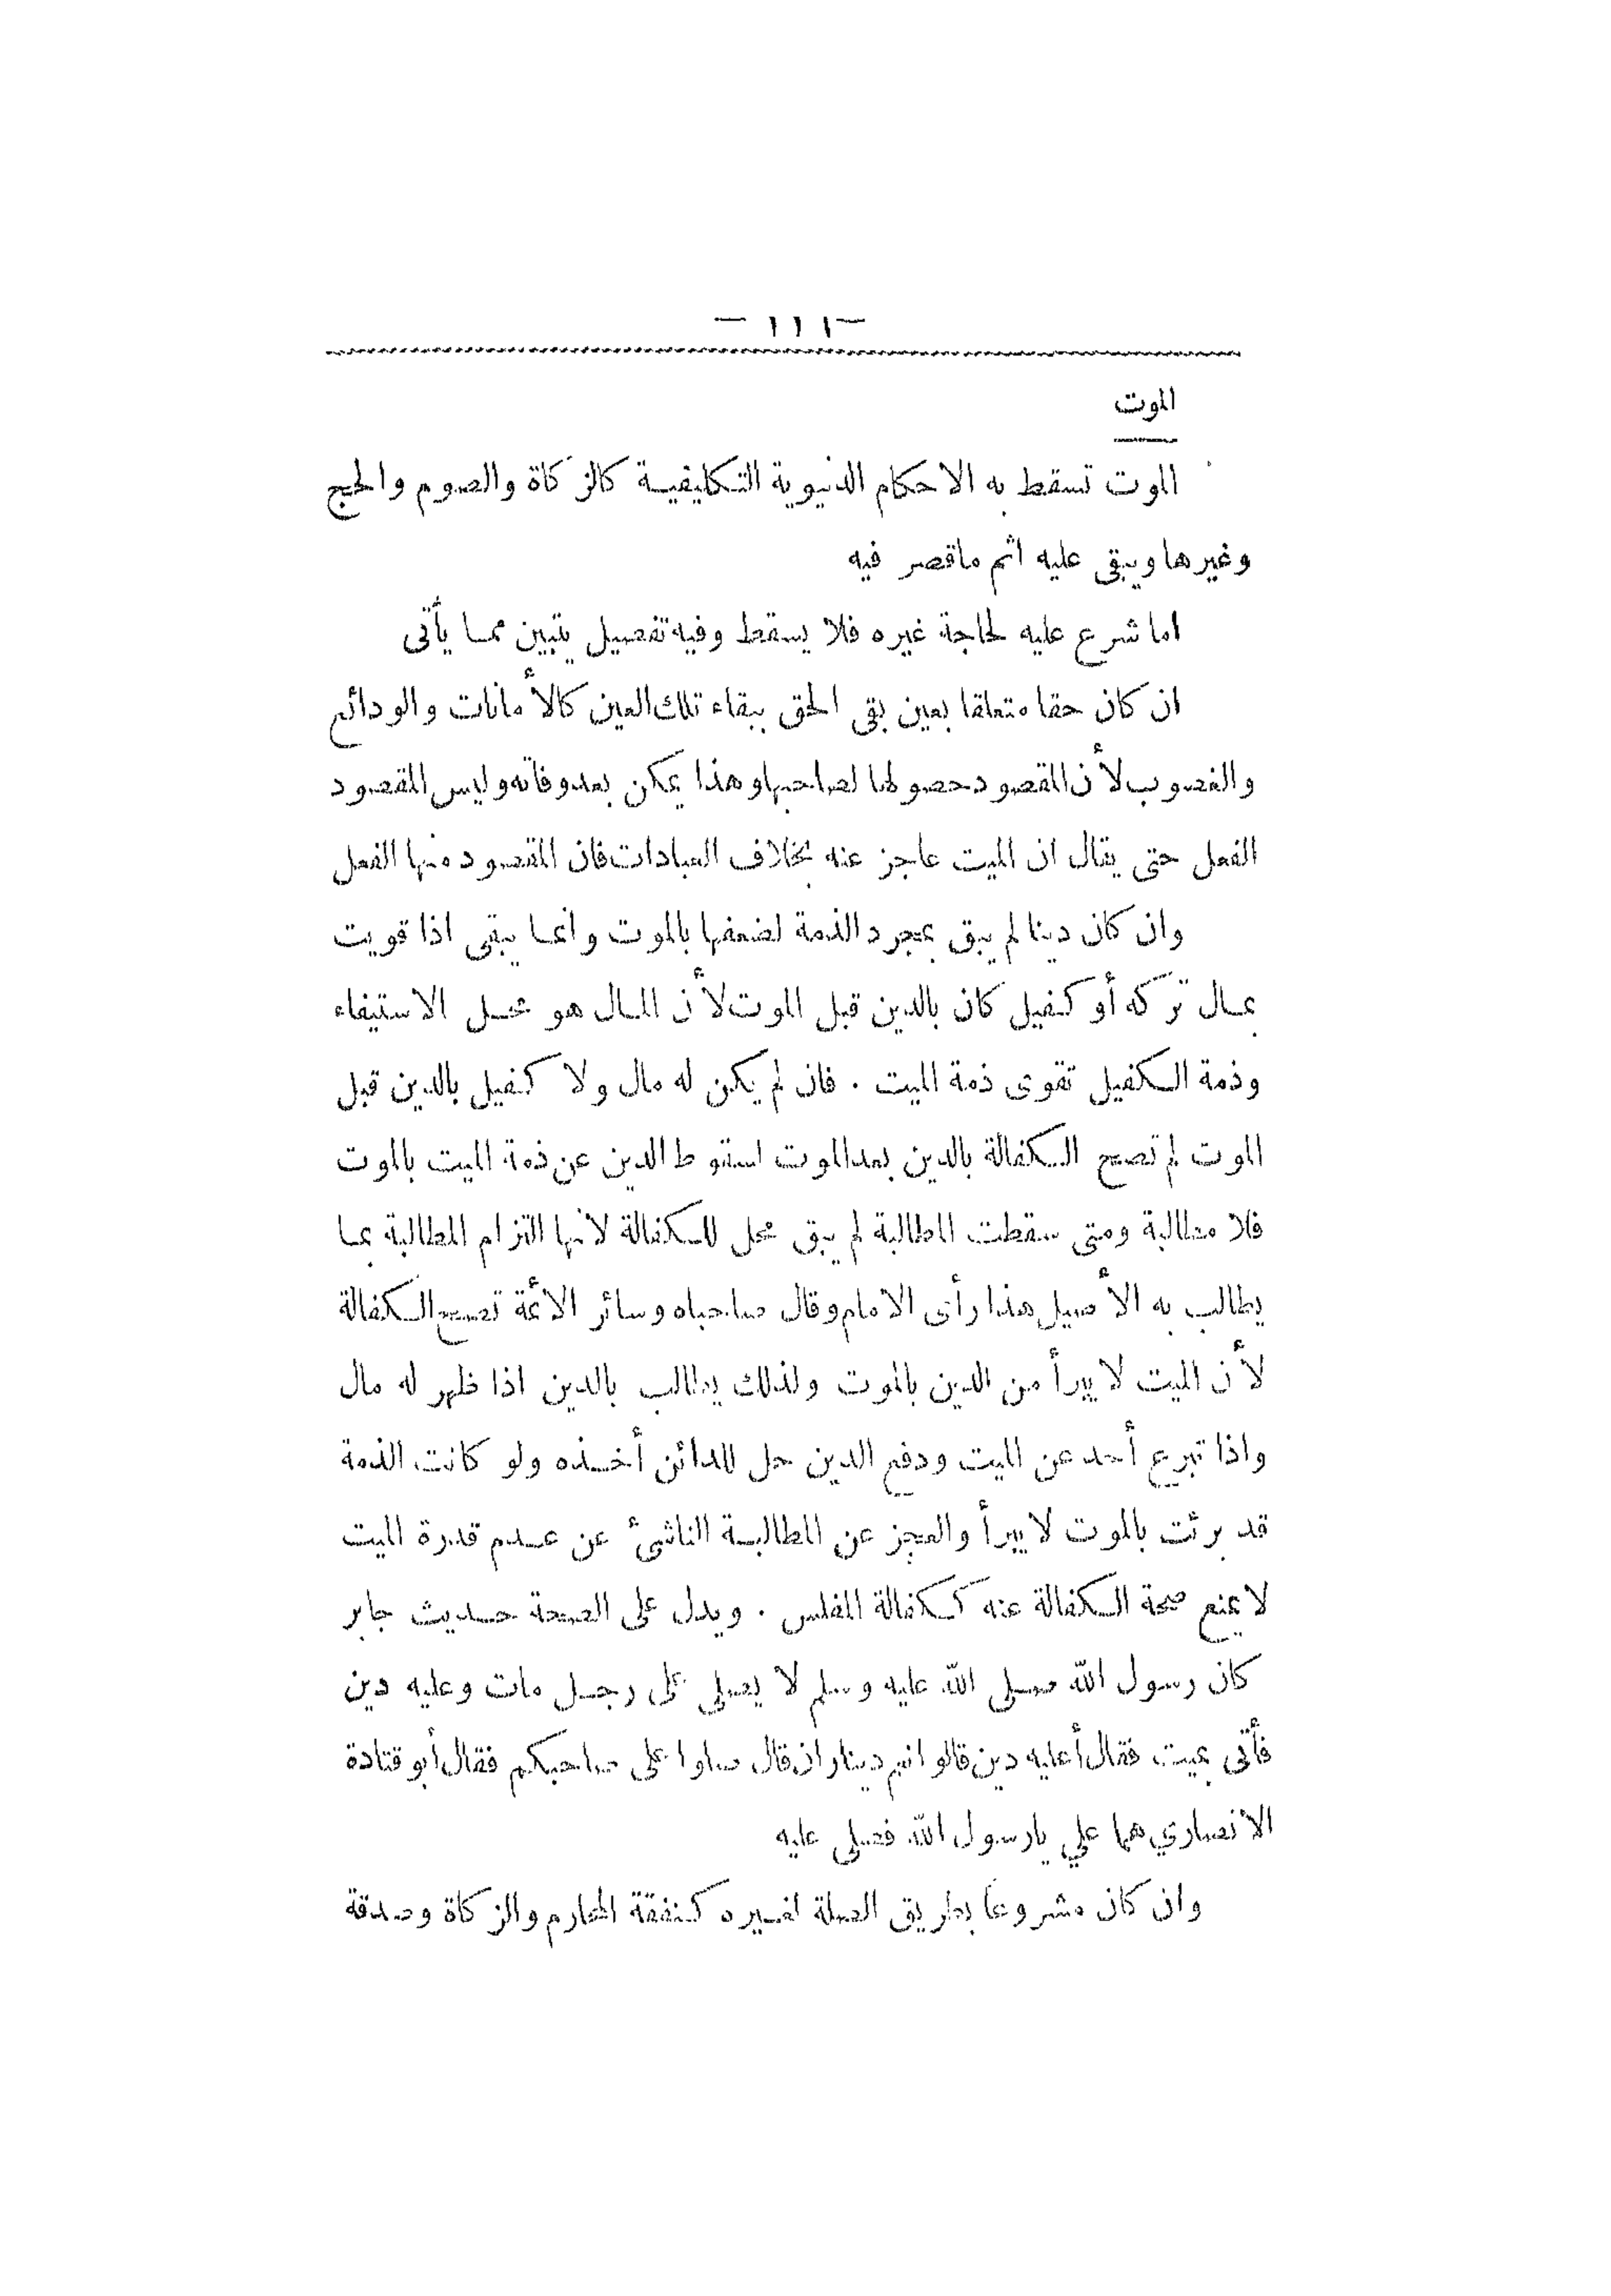 — ١١١ —
الموت
الموت تسقط به الاحكام الدنيوية التكليفية كالزكاة والصوم والحج
وغيرها ويبقى عليه اثم ماقصر فيه
اما شرع عليه لحاجة غيره فلا يسقط وفيه تفصيل يتبين مما يأتى
ان كان حقا متعلقا بعين بقى الحق ببقاء تلك العين كالأمانات والودائع
والغصوب لأن المقصود حصولها لصاحبها وهذا يمكن بعد وفاته وليس المقصود
الفعل حتى يقال ان الميت عاجز عنه بخلاف العبادات فان المقصود منها الفعل
وان كان دينا لم يبق بمجرد الذمة لضعفها بالموت وانما يبقى اذا قويت
بمال تركه أو كفيل كان بالدين قبل الموت لأن المال هو محل الاستيفاء
وذمة الكفيل تقوى ذمة الميت . فان لم يكن له مال ولا كفيل بالدين قبل
الموت لم تصح الكفالة بالدين بعد الموت لسقوط الدين عن ذمة الميت بالموت
فلا مطالبة ومتى سقطت المطالبة لم يبق محل للكفالة لانها التزام المطالبة بما
يطالب به الأصيل هذا رأى الامام وقال صاحباه وسائر الأئمة تصح الكفالة
لأن الميت لا يبرأ من الدين بالموت ولذلك يطالب بالدين اذا ظهر له مال
واذا تبرع أحد عن الميت ودفع الدين حل للدائن أخذه ولو كانت الذمة
قد برئت بالموت لا يبرأ والعجز عن المطالبة الناشئ عن عدم قدرة الميت
لا يمنع صحة الكفالة عنه ككفالة المفلس . ويدل على الصحة حديث جابر
كان رسول الله صلى الله عليه وسلم لا يصلى على رجل مات وعليه دين
فأتى بميت فقال أعليه دين قالوا نعم ديناران قال صلوا على صاحبكم فقال أبو قتادة
الانصاري هما علي يارسول الله فصلى عليه
وان كان مشروعا بطريق الصلة لغيره كنفقة المحارم والزكاة وصدقة